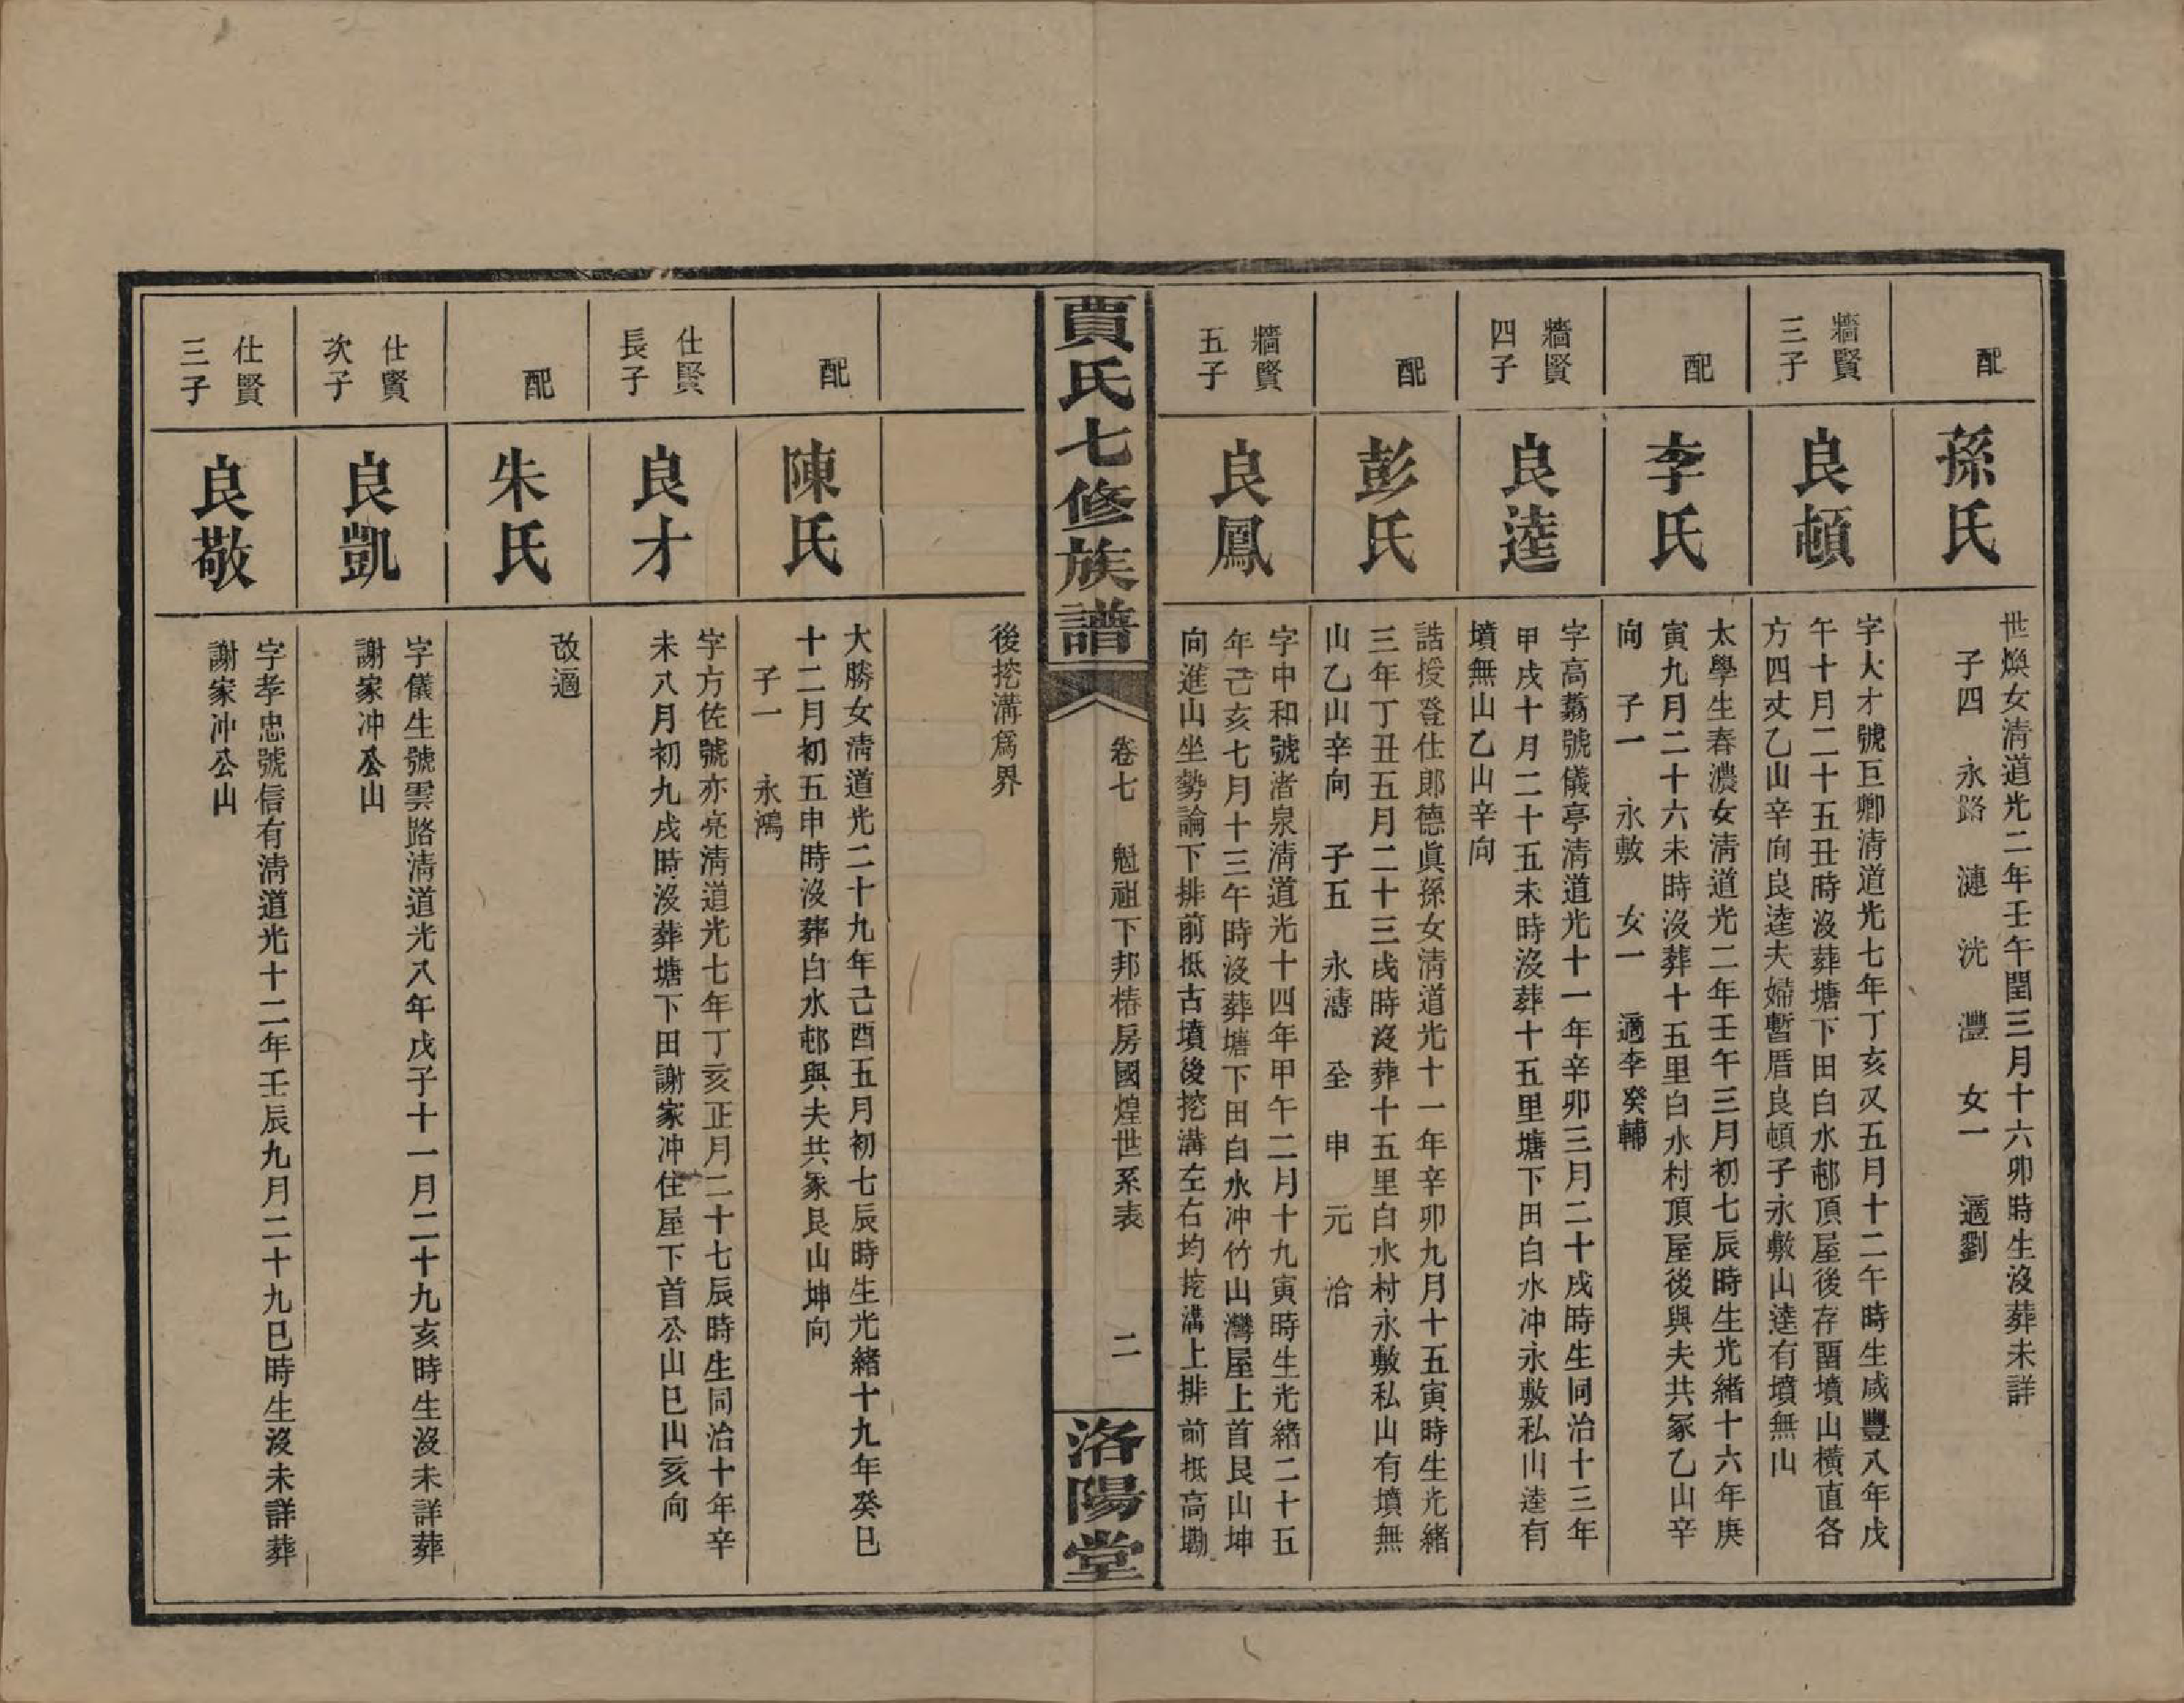 配
孫氏
世煥女淸道光二年壬午閏三月十六卯時生沒葬未詳
子四　永路　漣　洸　灃　女一　適劉
牆賢
三子
良頓
字大才號巨卿淸道光七年丁亥又五月十二午時生咸豐八年戊
午十月二十五丑時沒葬塘下田白水邨頂屋後存畱墳山橫直各
方四丈乙山辛向良逵夫婦暫厝良頓子永敷山逵有墳無山
配
李氏
太學生春濃女淸道光二年壬午三月初七辰時生光緒十六年庚
寅九月二十六未時沒葬十五里白水村頂屋後與夫共冢乙山辛
向　子一　永敷　女一　適李癸輔
牆賢
四子
良逵
字高翥號儀亭淸道光十一年辛卯三月二十戌時生同治十三年
甲戌十月二十五未時沒葬十五里塘下田白水冲永敷私山逵有
墳無山乙山辛向
配
彭氏
誥授登仕郎德眞孫女淸道光十一年辛卯九月十五寅時生光緒
三年丁丑五月二十三戌時沒葬十五里白水村永敷私山有墳無
山乙山辛向　子五　永濤　全　申　元　洽
牆賢
五子
良鳳
字中和號渚泉淸道光十四年甲午二月十九寅時生光緒二十五
年己亥七月十三午時沒葬塘下田白水冲竹山灣屋上首艮山坤
向進山坐勢論下排前抵古墳後挖溝左右均挖溝上排前抵高墈
賈氏七修族譜
卷七　魁祖下邦椿房國煌世系表　二
洛陽堂
後挖溝爲界
配
陳氏
大勝女淸道光二十九年己酉五月初七辰時生光緒十九年癸巳
十二月初五申時沒葬白水邨與夫共冢艮山坤向
子一　永鴻
仕賢
長子
良才
字方佐號亦亮淸道光七年丁亥正月二十七辰時生同治十年辛
未八月初九戌時沒葬塘下田謝家冲住屋下首公山巳山亥向
配
朱氏
改適
仕賢
次子
良凱
字儀生號雲路淸道光八年戊子十一月二十九亥時生沒未詳葬
謝家冲公山
仕賢
三子
良敬
字孝忠號信有淸道光十二年壬辰九月二十九巳時生沒未詳葬
謝家冲公山